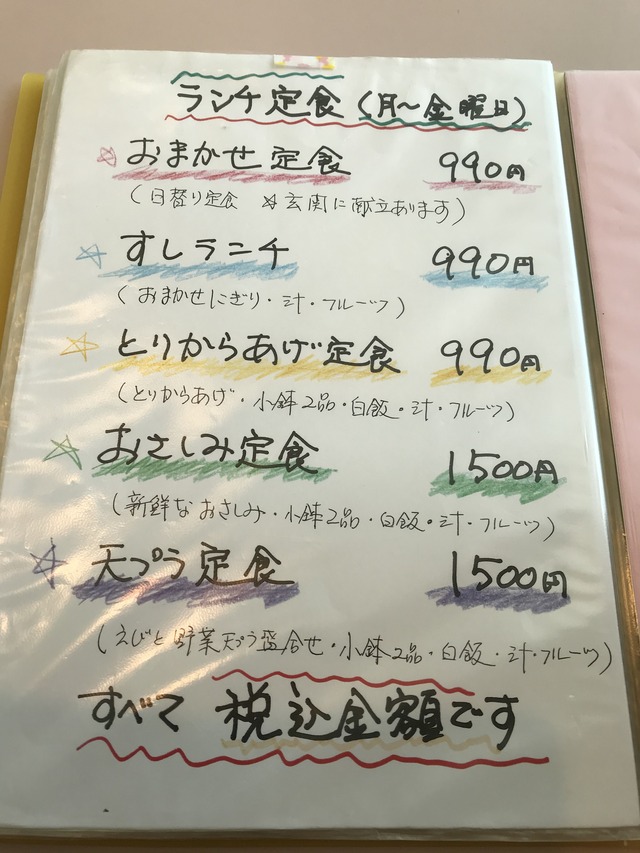 ランチ定食(月～金曜日)
☆おまかせ定食 990円
(日替り定食 ☆玄関に献立あります)
☆すしランチ 990円
(おまかせにぎり・汁・フルーツ)
☆とりからあげ定食 990円
(とりからあげ・小鉢2品・白飯・汁・フルーツ)
☆おさしみ定食 1500円
(新鮮なおさしみ・小鉢2品・白飯・汁・フルーツ)
☆天プラ定食 1500円
(えびと野菜天プラ盛合せ・小鉢2品・白飯・汁・フルーツ)
すべて税込金額です